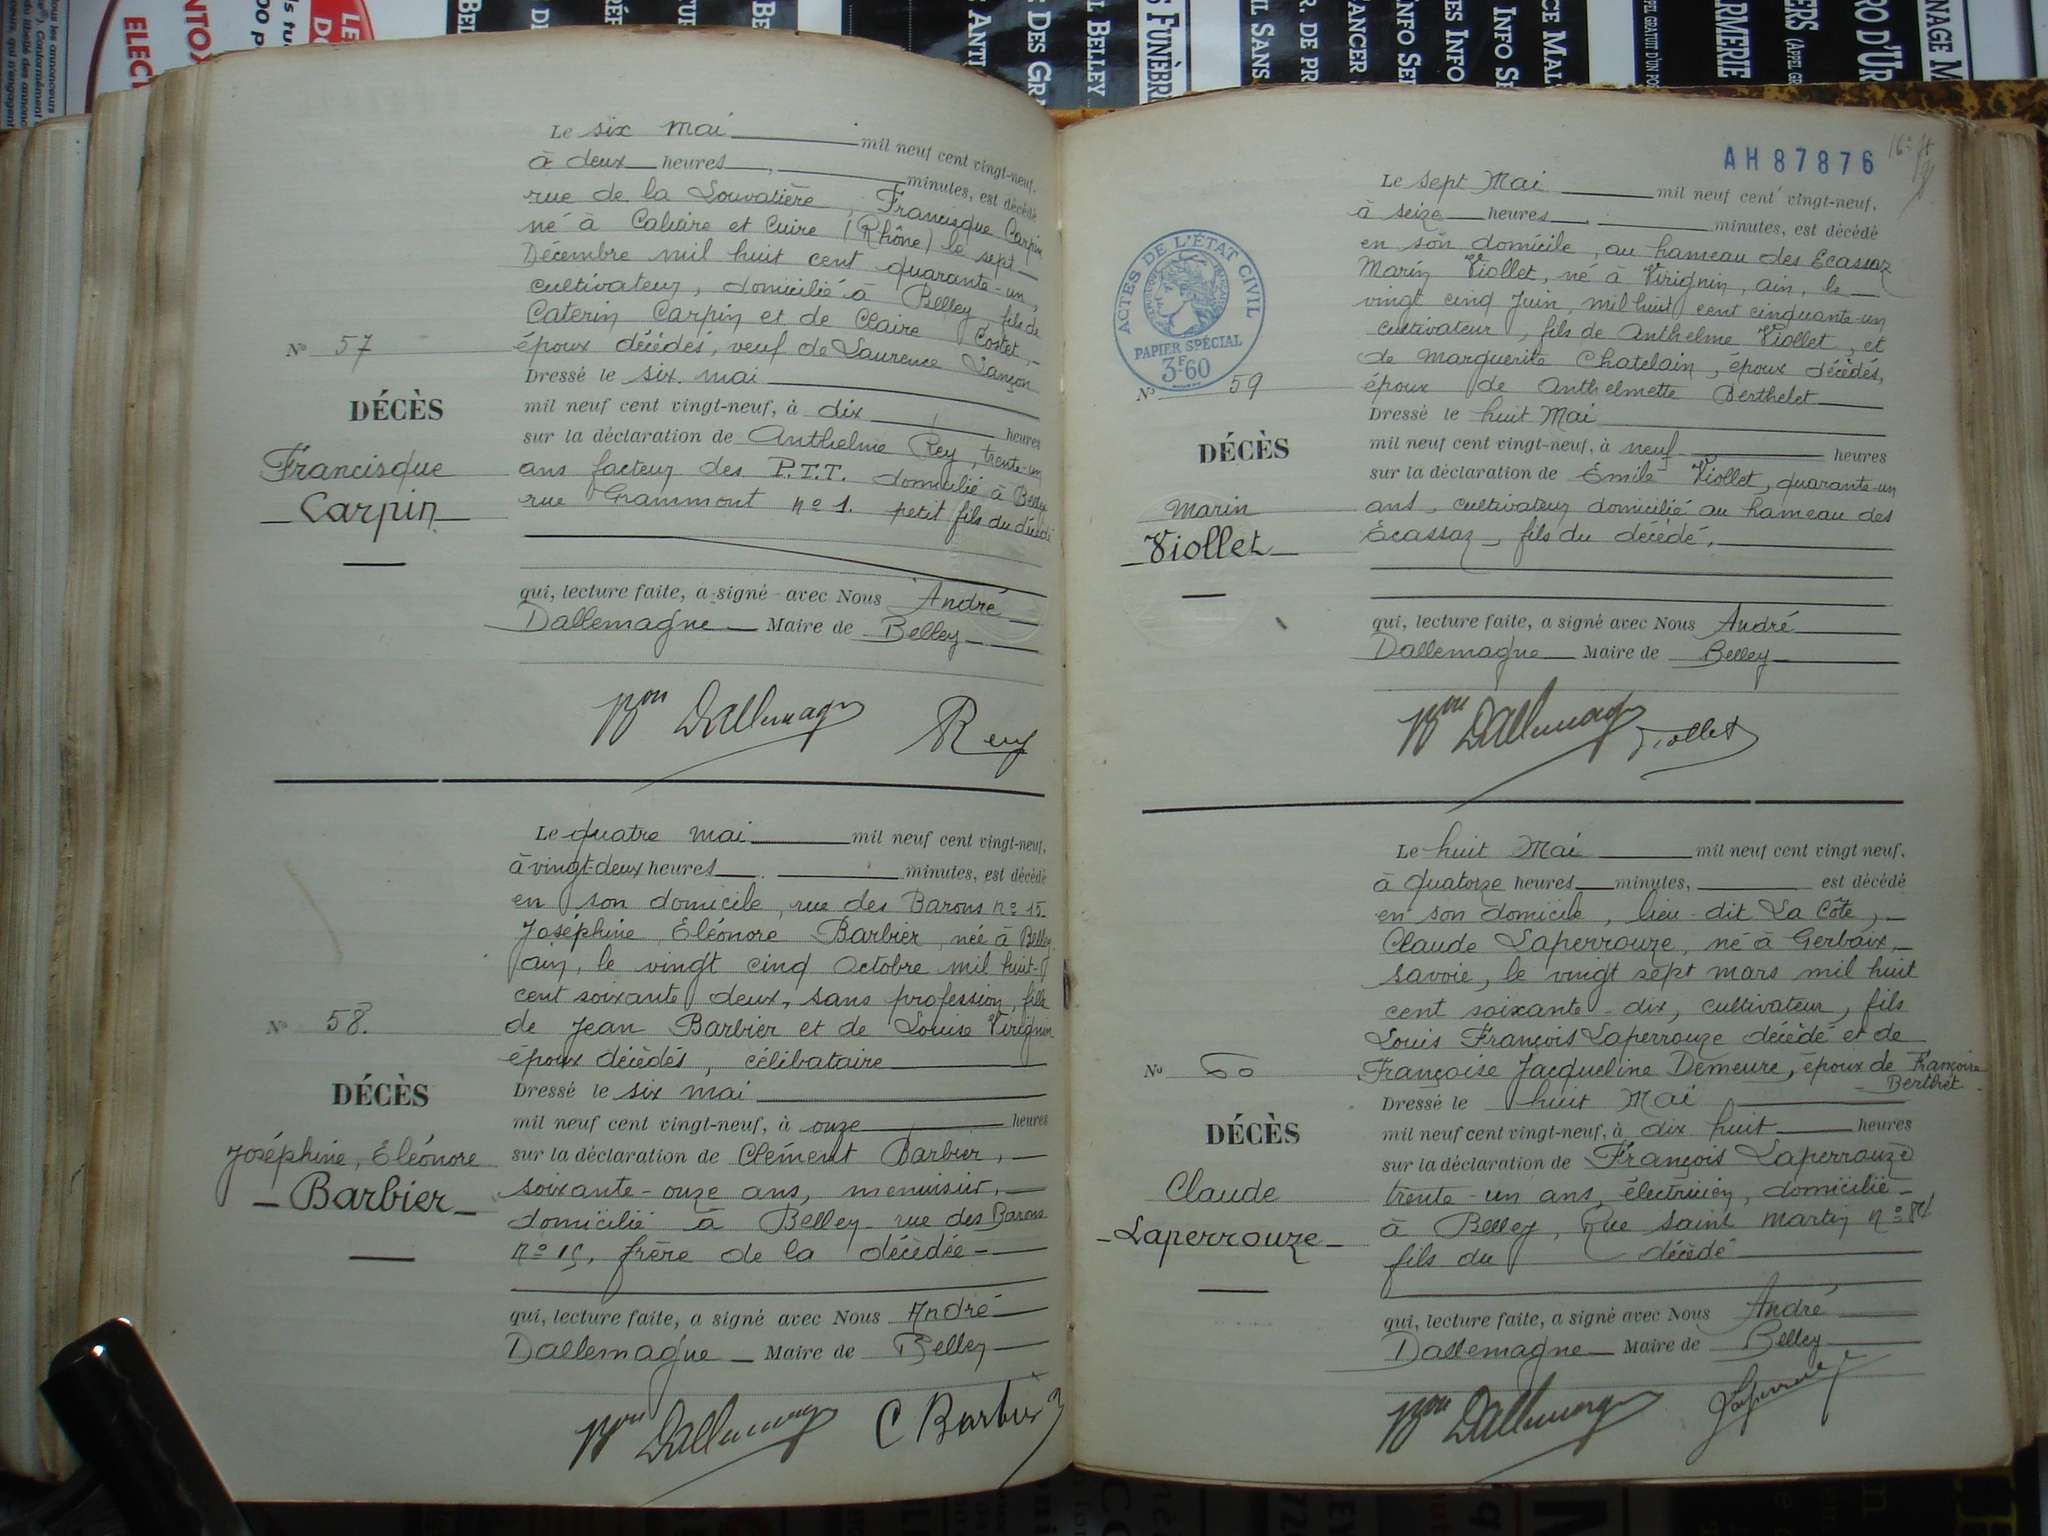 Le six mai mil neuf cent vingt-neuf,
à deux heures, minutes, est décédé
rue de la Louvatière, Francisque Carpin
né à Caluire et Cuire (Rhône) le sept
Décembre mil huit cent quarante-un,
cultivateur, domicilié à Belley, fils de
Caterin Carpin et de Claire Costet,
époux décédés, veuf de Laurence Lançon
Dressé le six mai
mil neuf cent vingt-neuf, à dix heures
sur la déclaration de Anthelme Rey, trente-un
ans facteur des P.T.T. domicilié à Belley
rue Grammont nº 1. petit fils du décédé
qui, lecture faite, a signé avec Nous André
Dallemagne Maire de Belley
Nº 57
DÉCÈS
Francisque
Carpin
Bon Dallemagne Rey
Le quatre mai mil neuf cent vingt-neuf,
à vingt-deux heures minutes, est décédé
en son domicile, rue des Barons nº 15.
Joséphine, Eléonore Barbier, née à Belley
ain, le vingt cinq Octobre mil huit
cent soixante deux, sans profession, fille
de Jean Barbier et de Louise Virignin
époux décédés, célibataire
Dressé le six mai
mil neuf cent vingt-neuf, à onze heures
sur la déclaration de Clément Barbier,
soixante-onze ans, menuisier,
domicilié à Belley rue des Barons
nº 15, frère de la décédée
qui, lecture faite, a signé avec Nous André
Dallemagne Maire de Belley
Nº 58.
DÉCÈS
Joséphine, Eléonore
Barbier
Bon Dallemagne C Barbier
AH 87876
Le sept Mai mil neuf cent vingt-neuf,
à seize heures minutes, est décédé
en son domicile, au hameau des Ecassaz
Marin Viollet, né à Virignin, ain, le
vingt cinq Juin, mil huit cent cinquante-un
cultivateur, fils de Anthelme Viollet, et
de Marguerite Chatelain, époux décédés,
époux de Anthelmette Berthelet
Dressé le huit Mai
mil neuf cent vingt-neuf, à neuf heures
sur la déclaration de Emile Viollet, quarante-un
ans, cultivateur domicilié au hameau des
Ecassaz, fils du décédé.
qui, lecture faite, a signé avec Nous André
Dallemagne Maire de Belley
ACTES DE L'ÉTAT CIVIL
PAPIER SPÉCIAL
3F60
Nº 59
DÉCÈS
Marin
Viollet
Bon Dallemagne Viollet
Le huit Mai mil neuf cent vingt neuf,
à quatorze heures minutes, est décédé
en son domicile, lieu-dit La Côte,
Claude Laperrouze, né à Gerbaix,
savoie, le vingt sept mars mil huit
cent soixante-dix, cultivateur, fils
Louis François Laperrouze décédé et de
Françoise Jacqueline Demeure, époux de Françoise
Berthet
Dressé le huit Mai
mil neuf cent vingt-neuf, à dix huit heures
sur la déclaration de François Laperrouze
trente-un ans, électricien, domicilié
à Belley, Rue saint Martin nº 84
fils du décédé
qui, lecture faite, a signé avec Nous André
Dallemagne Maire de Belley
Nº 60
DÉCÈS
Claude
Laperrouze
Bon Dallemagne Laperrouze